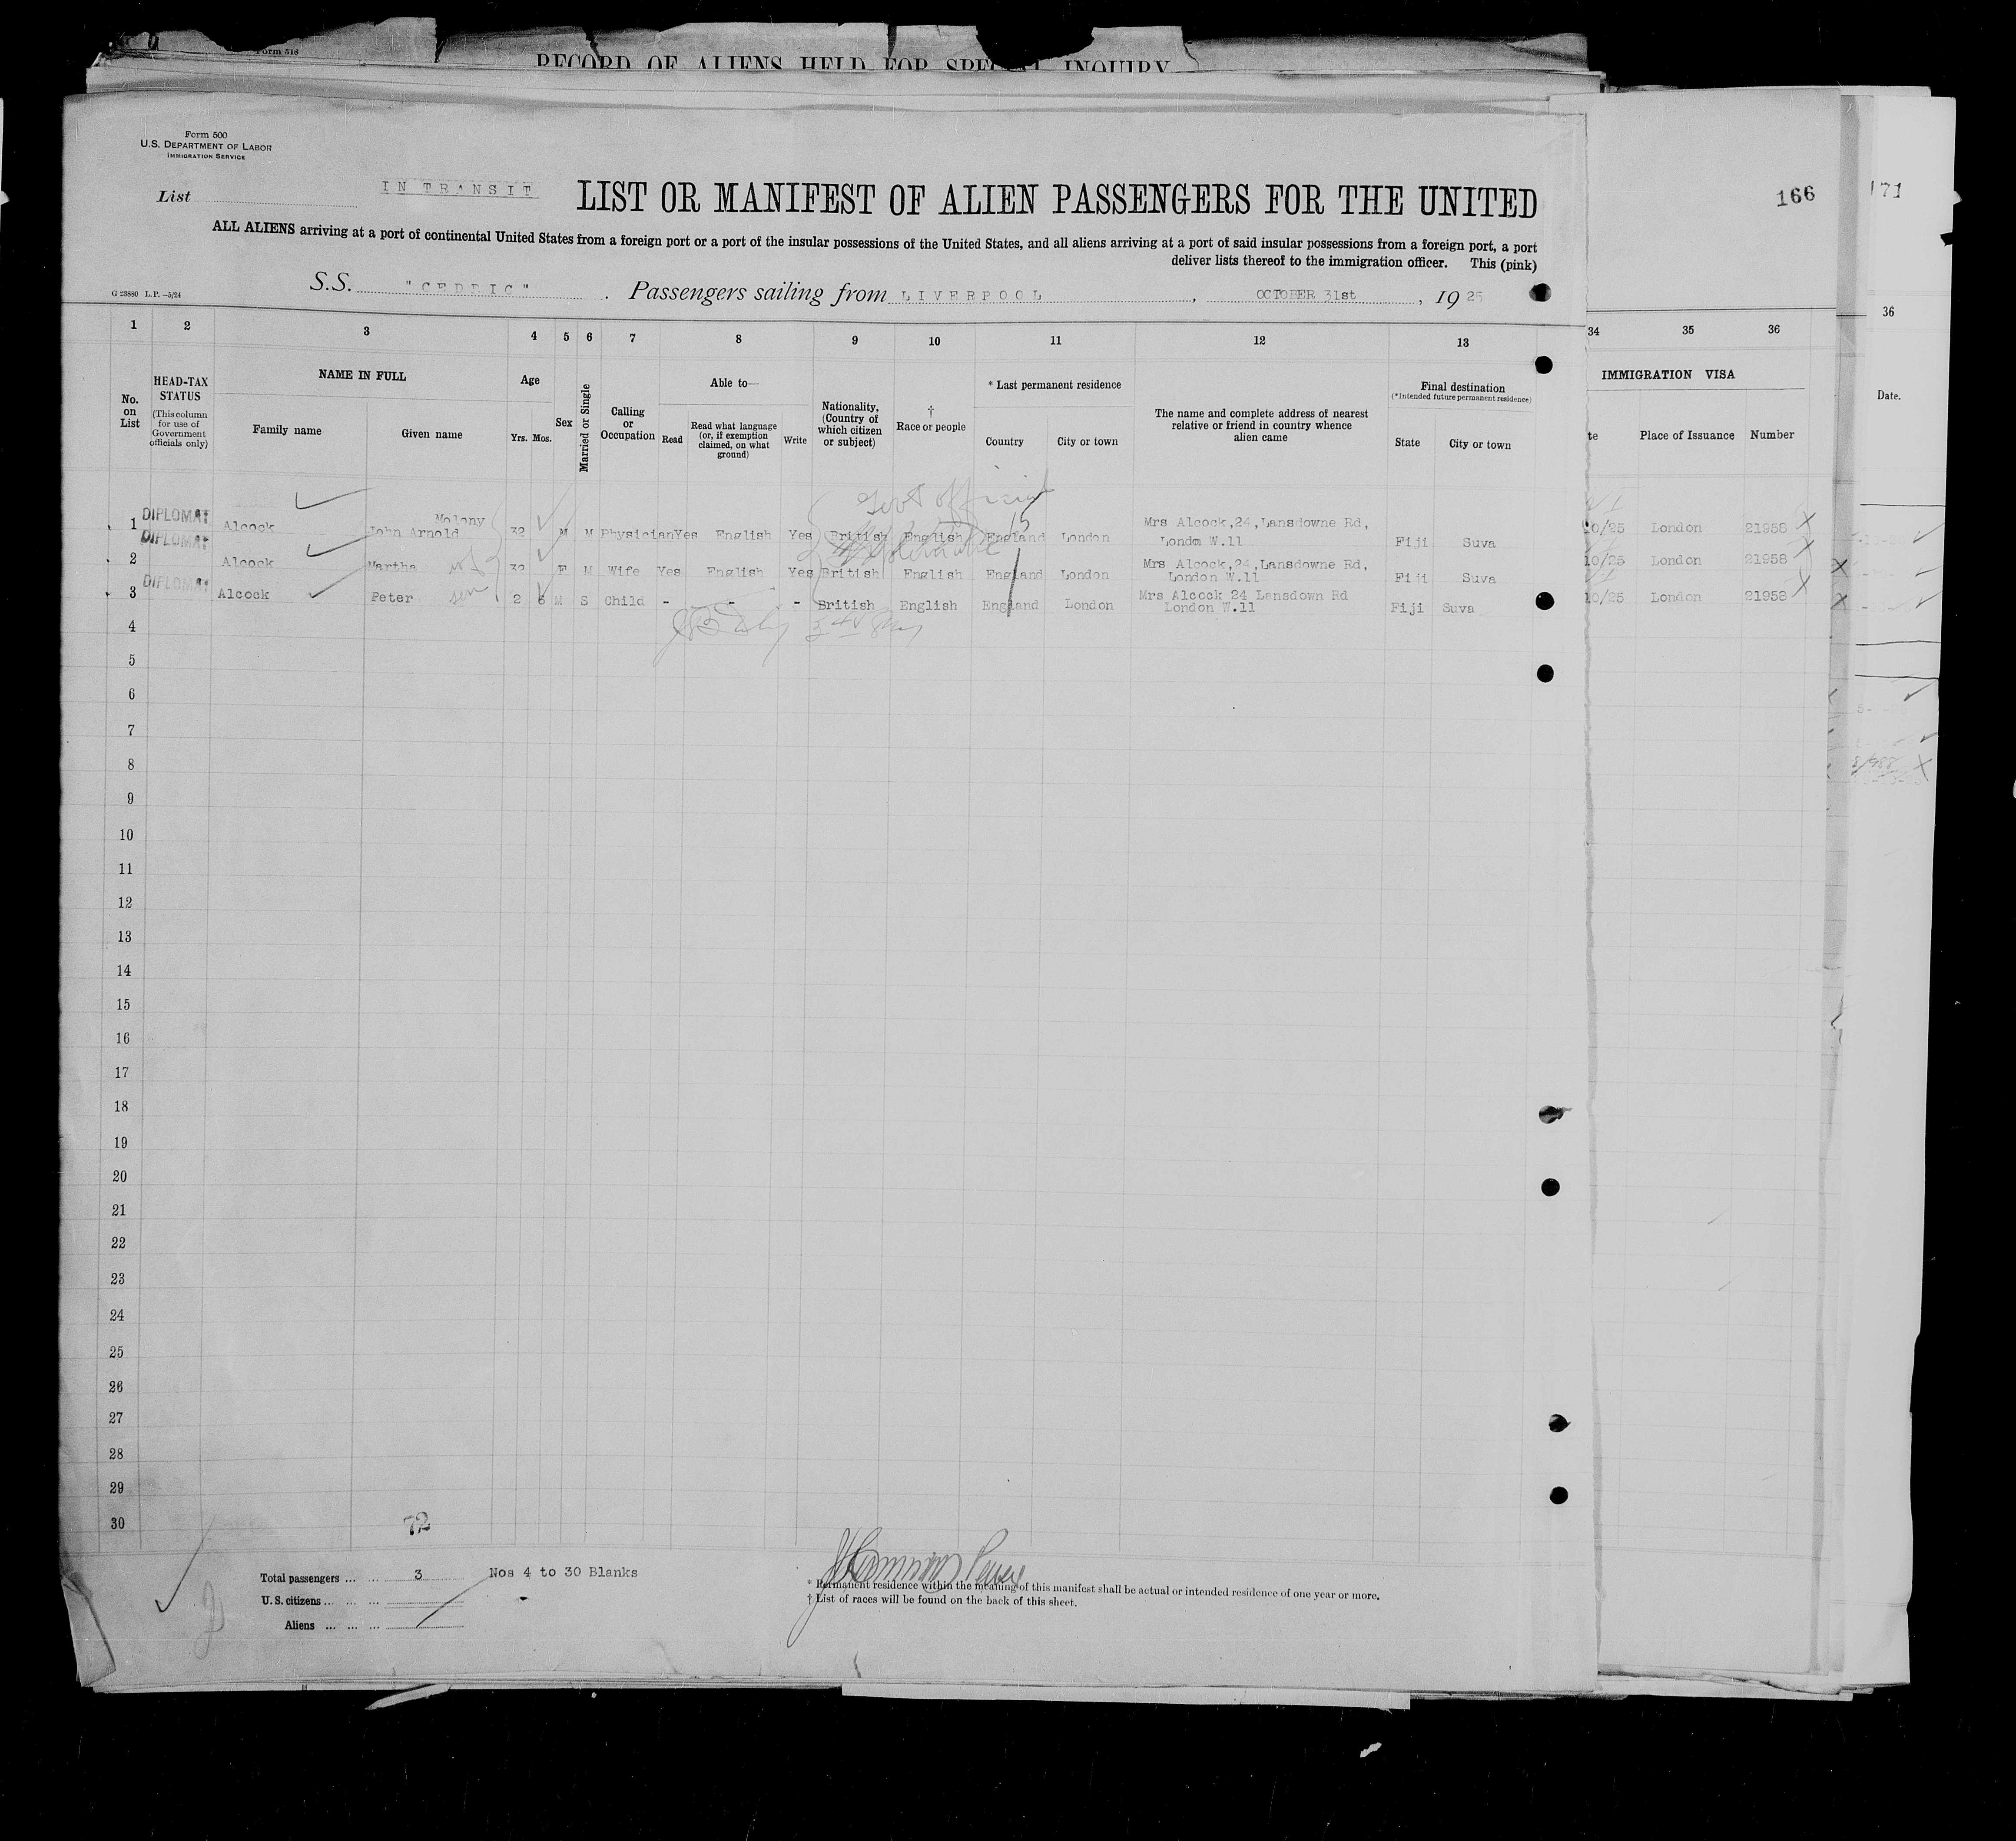 Form 518
RECORD OF ALIENS HELD FOR SPECIAL INQUIRY
Form 500
U.S. DEPARTMENT OF LABOR
IMMIGRATION SERVICE
List
IN TRANSIT
LIST OR MANIFEST OF ALIEN PASSENGERS FOR THE UNITED
166
171
ALL ALIENS arriving at a port of continental United States from a foreign port or a port of the insular possessions of the United States, and all aliens arriving at a port of said insular possessions from a foreign port, a port
deliver lists thereof to the immigration officer. This (pink)
G 23880 L.P.—5/24
S.S. "CEDRIC". Passengers sailing from LIVERPOOL, OCTOBER 31st, 1925
1 2 3 4 5 6 7 8 9 10 11 12 13 34 35 36 36
No. on List
HEAD-TAX STATUS
(This column for use of Government officials only)
NAME IN FULL
Family name Given name
Age
Yrs. Mos.
Sex
Married or Single
Calling or Occupation
Able to—
Read
Read what language (or, if exemption claimed, on what ground)
Write
Nationality, (Country of which citizen or subject)
† Race or people
* Last permanent residence
Country City or town
The name and complete address of nearest relative or friend in country whence alien came
Final destination
(*Intended future permanent residence)
State City or town
IMMIGRATION VISA
te Place of Issuance Number
Date.
Govt official
1 DIPLOMAT Alcock John Arnold Molony 32 M M Physician Yes English Yes British English England London Mrs Alcock,24,Lansdowne Rd, London W.11 Fiji Suva 10/25 London 21958
2 DIPLOMAT Alcock Martha wf 32 F M Wife Yes English Yes British English England London Mrs Alcock,24,Lansdowne Rd, London W.11 Fiji Suva 10/25 London 21958
3 DIPLOMAT Alcock Peter son 2 6 M S Child - - - British English England London Mrs Alcock 24 Lansdown Rd London W.11 Fiji Suva 10/25 London 21958
4
5
6
7
8
9
10
11
12
13
14
15
16
17
18
19
20
21
22
23
24
25
26
27
28
29
30
72
Total passengers ... ... 3 Nos 4 to 30 Blanks
U.S. citizens ... ... ...
Aliens ... ... ...
* Permanent residence within the meaning of this manifest shall be actual or intended residence of one year or more.
† List of races will be found on the back of this sheet.